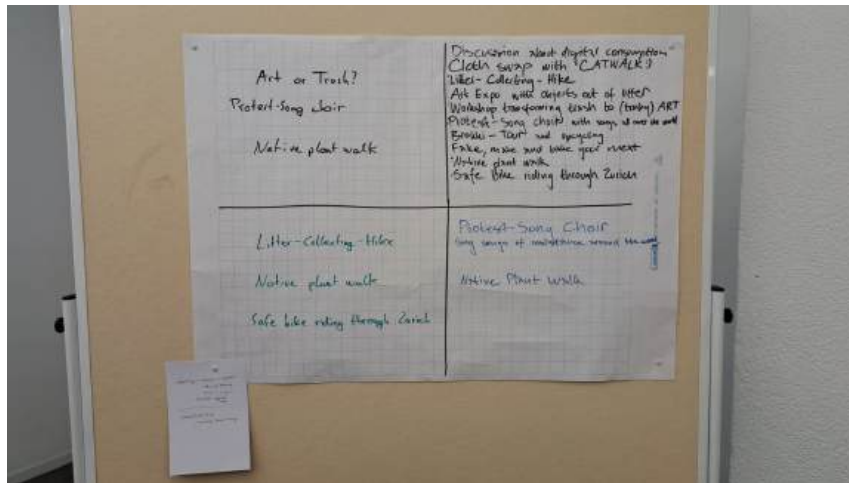 Art or Trash?
Protest-Song Choir
Native plant walk
Discussion about digital consumption
Cloth swap with "CATWALK?"
Litter-Collecting-Hike
Art Expo with objects out of litter
Workshop transforming trash to (trashy) ART
Protest-Song choir with songs all over the world
Brocki-Tour and upcycling
Fake, make and bake your meat
Native plant walk
Safe bike riding through Zurich
Litter-Collecting-Hike
Native plant walk
Safe bike riding through Zurich
Protest-Song Choir
Sing songs of resistance around the world
Native Plant Walk